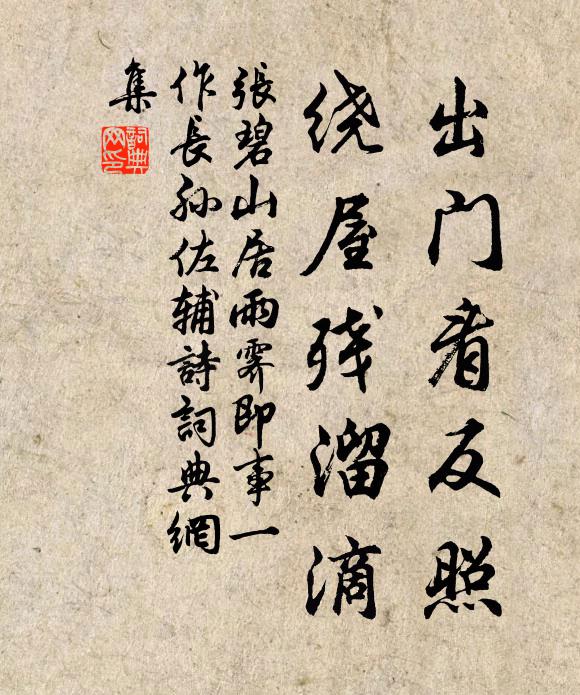 出门看反照
绕屋残溜滴
張碧山居雨霁即事一
作長孙佐辅詩詞典網
集
詞典網印